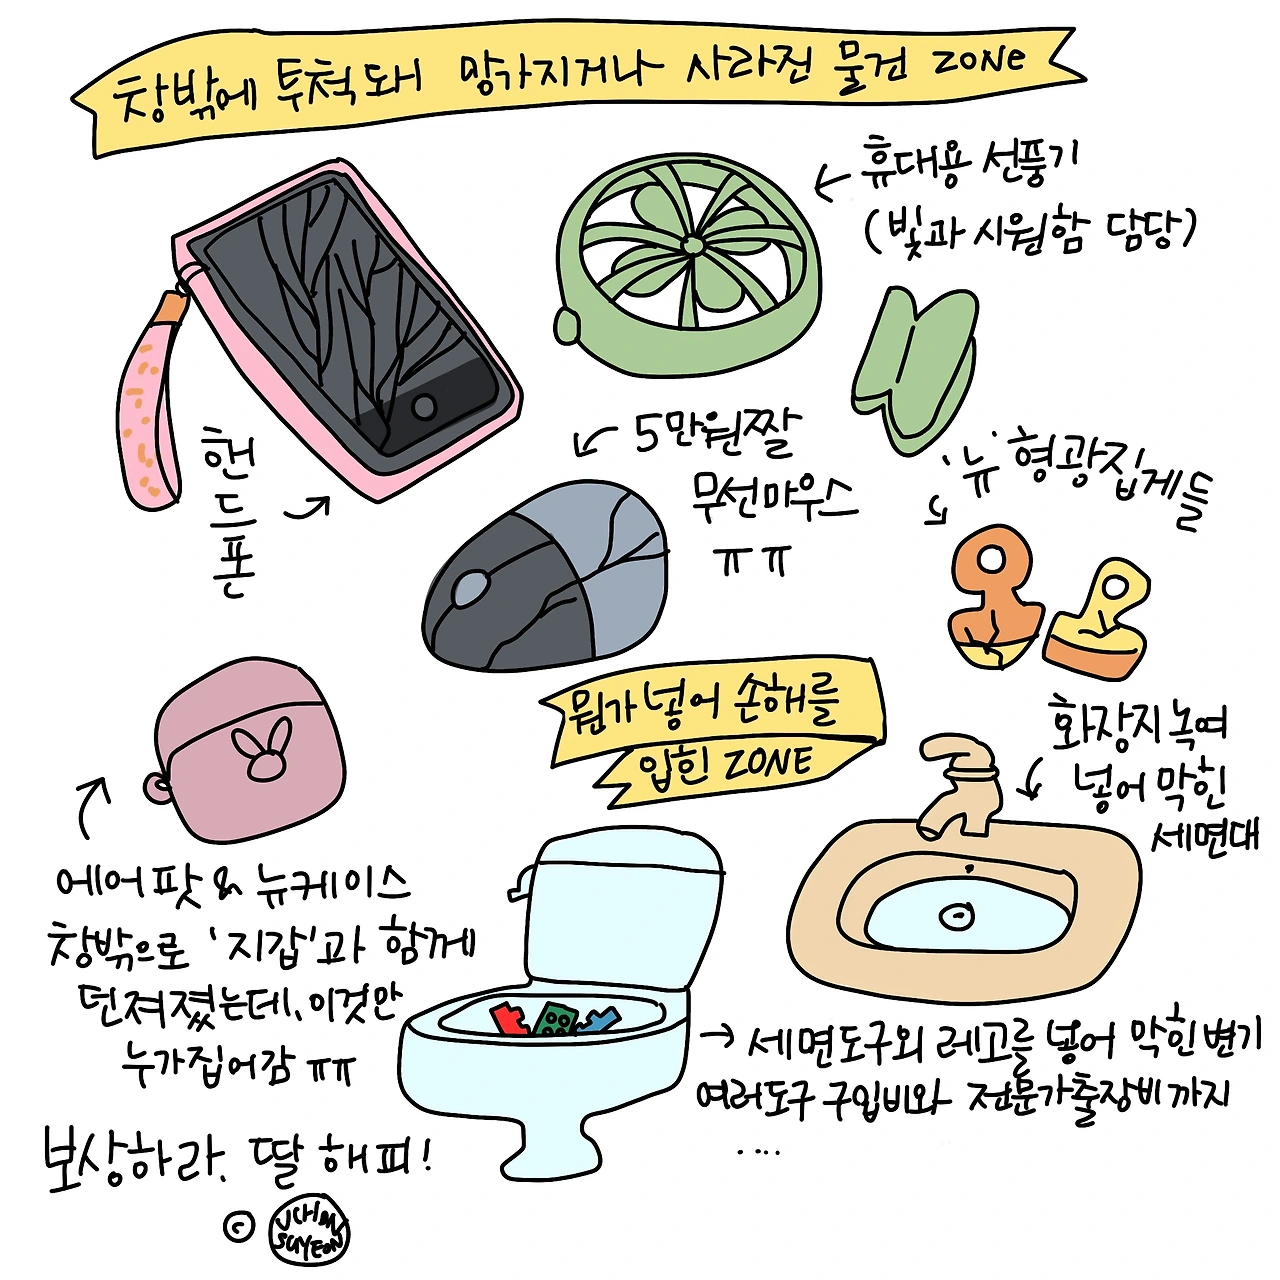 창밖에 투척돼 망가지거나 사라진 물건 ZONE
휴대용 선풍기
(빛과 시원함 담당)
핸
드
폰
5만원짤
무선마우스
ㅠㅠ
'뉴' 형광집게들
뭔가 넣어 손해를
입힌 ZONE
화장지 녹여
넣어 막힌
세면대
에어팟 & 뉴케이스
창밖으로 '지갑'과 함께
던져졌는데, 이것만
누가집어감 ㅠㅠ
→ 세면도구와 레고를 넣어 막힌 변기
여러도구 구입비와 전문가출장비까지
....
보상하라, 딸 해피!
© UCHIN
SUYEON